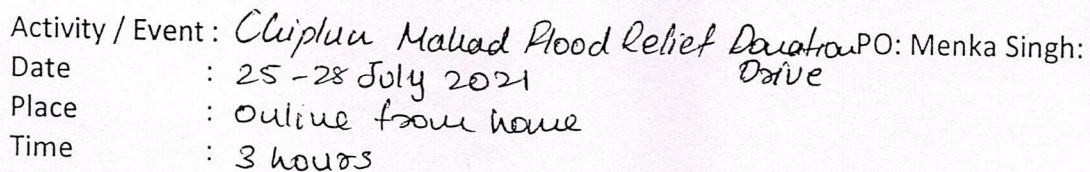 Activity / Event : Chiplun Mahad Flood Relief Donation PO: Menka Singh:
Drive
Date : 25-28 July 2021
Place : Online from home
Time : 3 hours